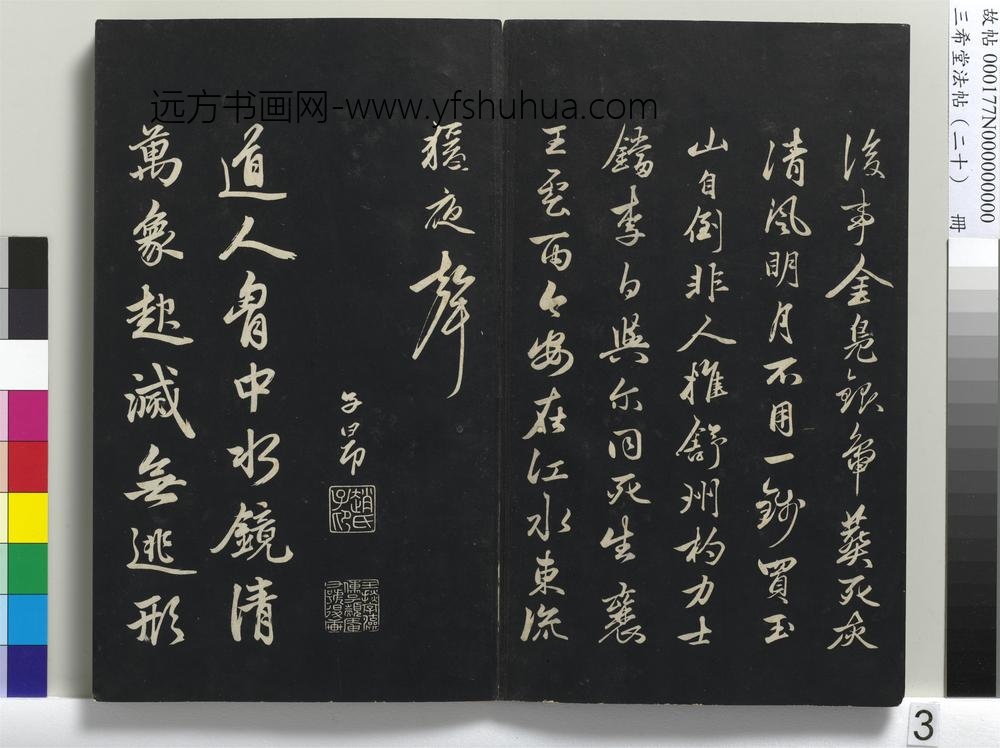 後事金鳧銀鴈葬死灰
清風明月不用一錢買玉
山自倒非人推舒州杓力士
鐺李白與尔同死生襄
王雲雨今安在江水東流
猿夜聲
子昂
趙氏子昂
道人胷中水鏡清
萬象起滅無逃形
远方书画网-www.yfshuhua.com
故帖 000177N000000000
三希堂法帖（二十） 冊
3